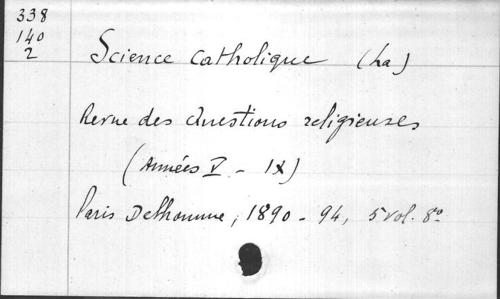 338
140
2
Science Catholique (La)
Revue des Questions religieuses
(Années V - IX)
Paris Delhomme, 1890-94, 5 vol. 8º